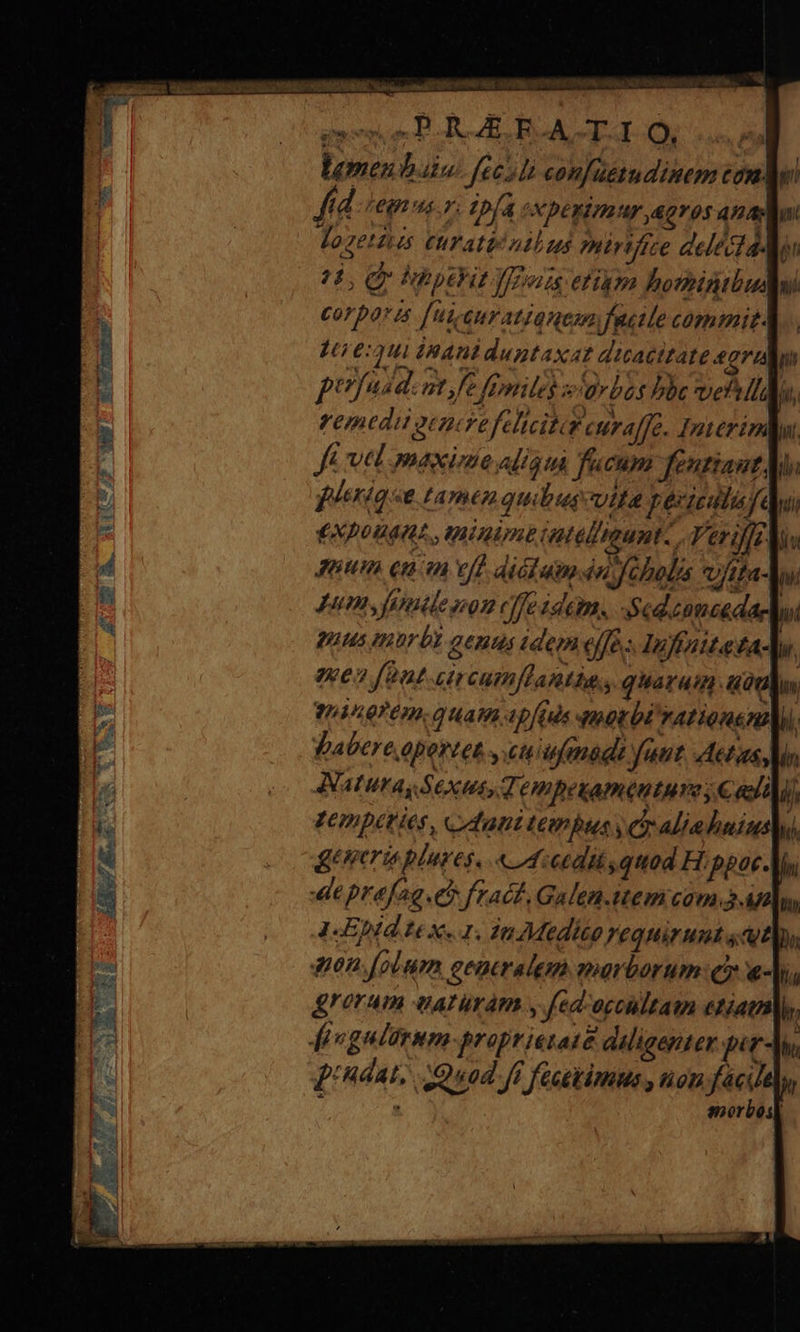 PRÆFATIO.
tamen huius sęculi consuetudinem con-
sid
ipsa experimur, ægros ana-
logetitiis curationibus mirifice delecta-
ri, & imperitissimis etiam hominibus
corporis sui curationem facile commit-
tere: qui inani duntaxat dicacitate ægris
persuadent, se similes morbos hoc vel illo
remedii genere feliciter curasse. Interim
si vel maxime aliqui fucum sentiant,
plerique tamen quibus vitæ periculis se
exponant, minime intelligunt. Verissi-
mum enim est dictum in scholis vsita-
tum, simile non esse idem. Sed conceda-
mus morbi genus idem esse: Infinitæ ta-
men sunt circumstantiæ, quarum non
minorem, quam ipsius morbi rationem
habere oportet, cuiusmodi sunt Aetas,
Natura, Sexus, Temperamenture, Cæli
temperies, Anni tempus, & alia huius
generis plures. Accedit, quod Hippoc.
de præsag. & fract. Galen. item com. 3. in
1. Epid. tex. 1. in Medico requirunt, vt
non solum generalem morborum & æ-
grorum naturam, sed occultam etiam
singulorum proprietatē diligenter per-
pendat. Quod si fecerimus, non facile
morbos